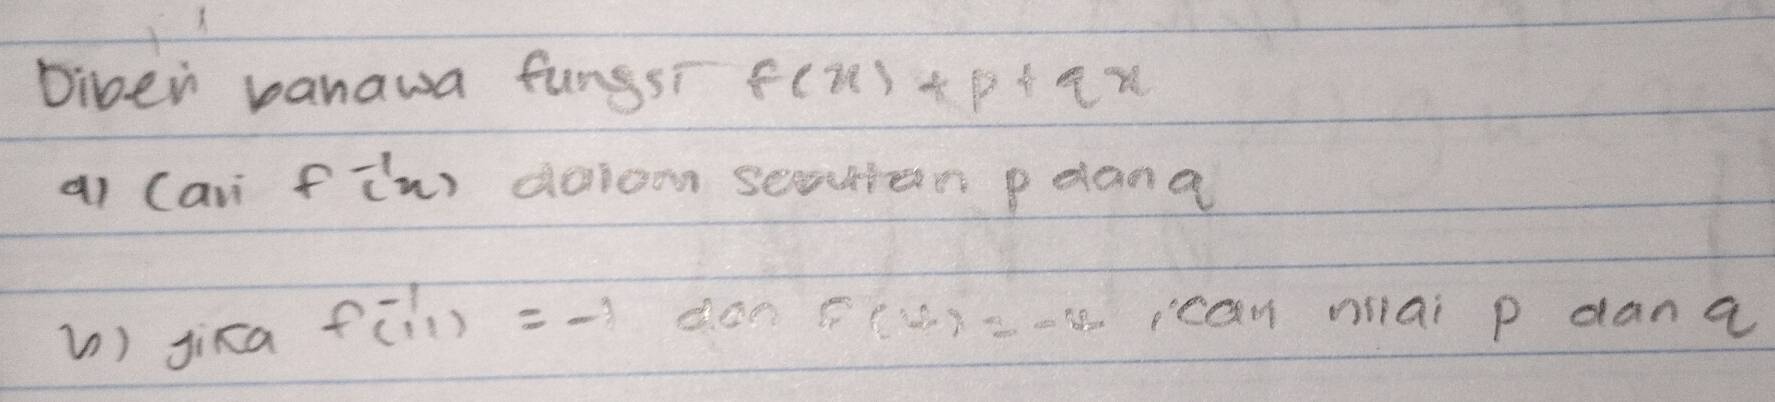 Diberi bahawa fungsi f(x) = p + qx
a) Cari f⁻¹(x) dalam sebutan p dan q
b) jika f⁻¹(1) = -1 dan f(4) = -4 , cari nilai p dan q